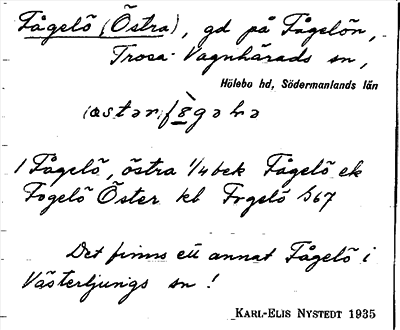 Fågelö (Östra), gd på Fågelön,
Trosa-Vagnhärads sn,
Hölebo hd, Södermanlands län
1 Fågelö, östra 1/4 bek Fågelö ek
Fogelö Öster kb Fogelö S67
Det finns ett annat Fågelö i
Västerljungs sn!
KARL-ELIS NYSTEDT 1935